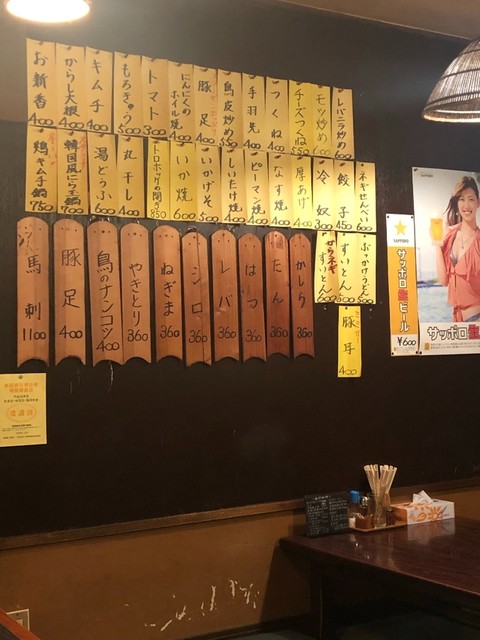 お新香 400
からし大根 400
キムチ 400
もろきゅう 500
トマト 300
にんにくのホイル焼 400
豚足 400
鳥皮炒め 550
手羽先 400
つくね 400
チーズつくね 550
モツ炒め 600
レバニラ炒め
鶏キムチ鍋 750
韓国風にら玉鍋 700
湯どうふ 600
丸干し 400
トロホッケの開き 850
いか焼 600
いかげそ 500
しいたけ焼 400
ピーマン焼 400
なす焼 400
厚あげ 400
冷奴 300
餃子 450
ネギせんべい 600
ねぎすいとん
すいとん 500
ぶっかけうどん 500
豚耳 400
馬刺 1100
豚足 400
鳥のナンコツ 400
やきとり 360
ねぎま 360
シロ 360
レバ 360
はつ 360
たん 360
かしら 360
SAPPORO
サッポロ生ビール
¥600
サッポロ生